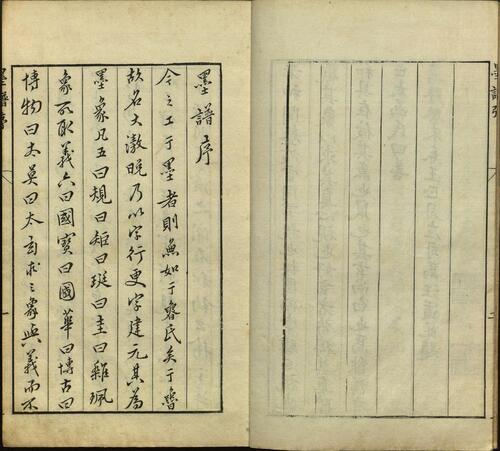 墨譜序
今之工于墨者則無如于魯氏矣于魯
故名大澂晚乃以字行更字建元其為
墨象凡五曰規曰矩曰珽曰圭曰雜珮
象不取義六曰國寶曰國華曰博古曰
博物曰太莫曰太玄求之象與義而不
墨譜序
一